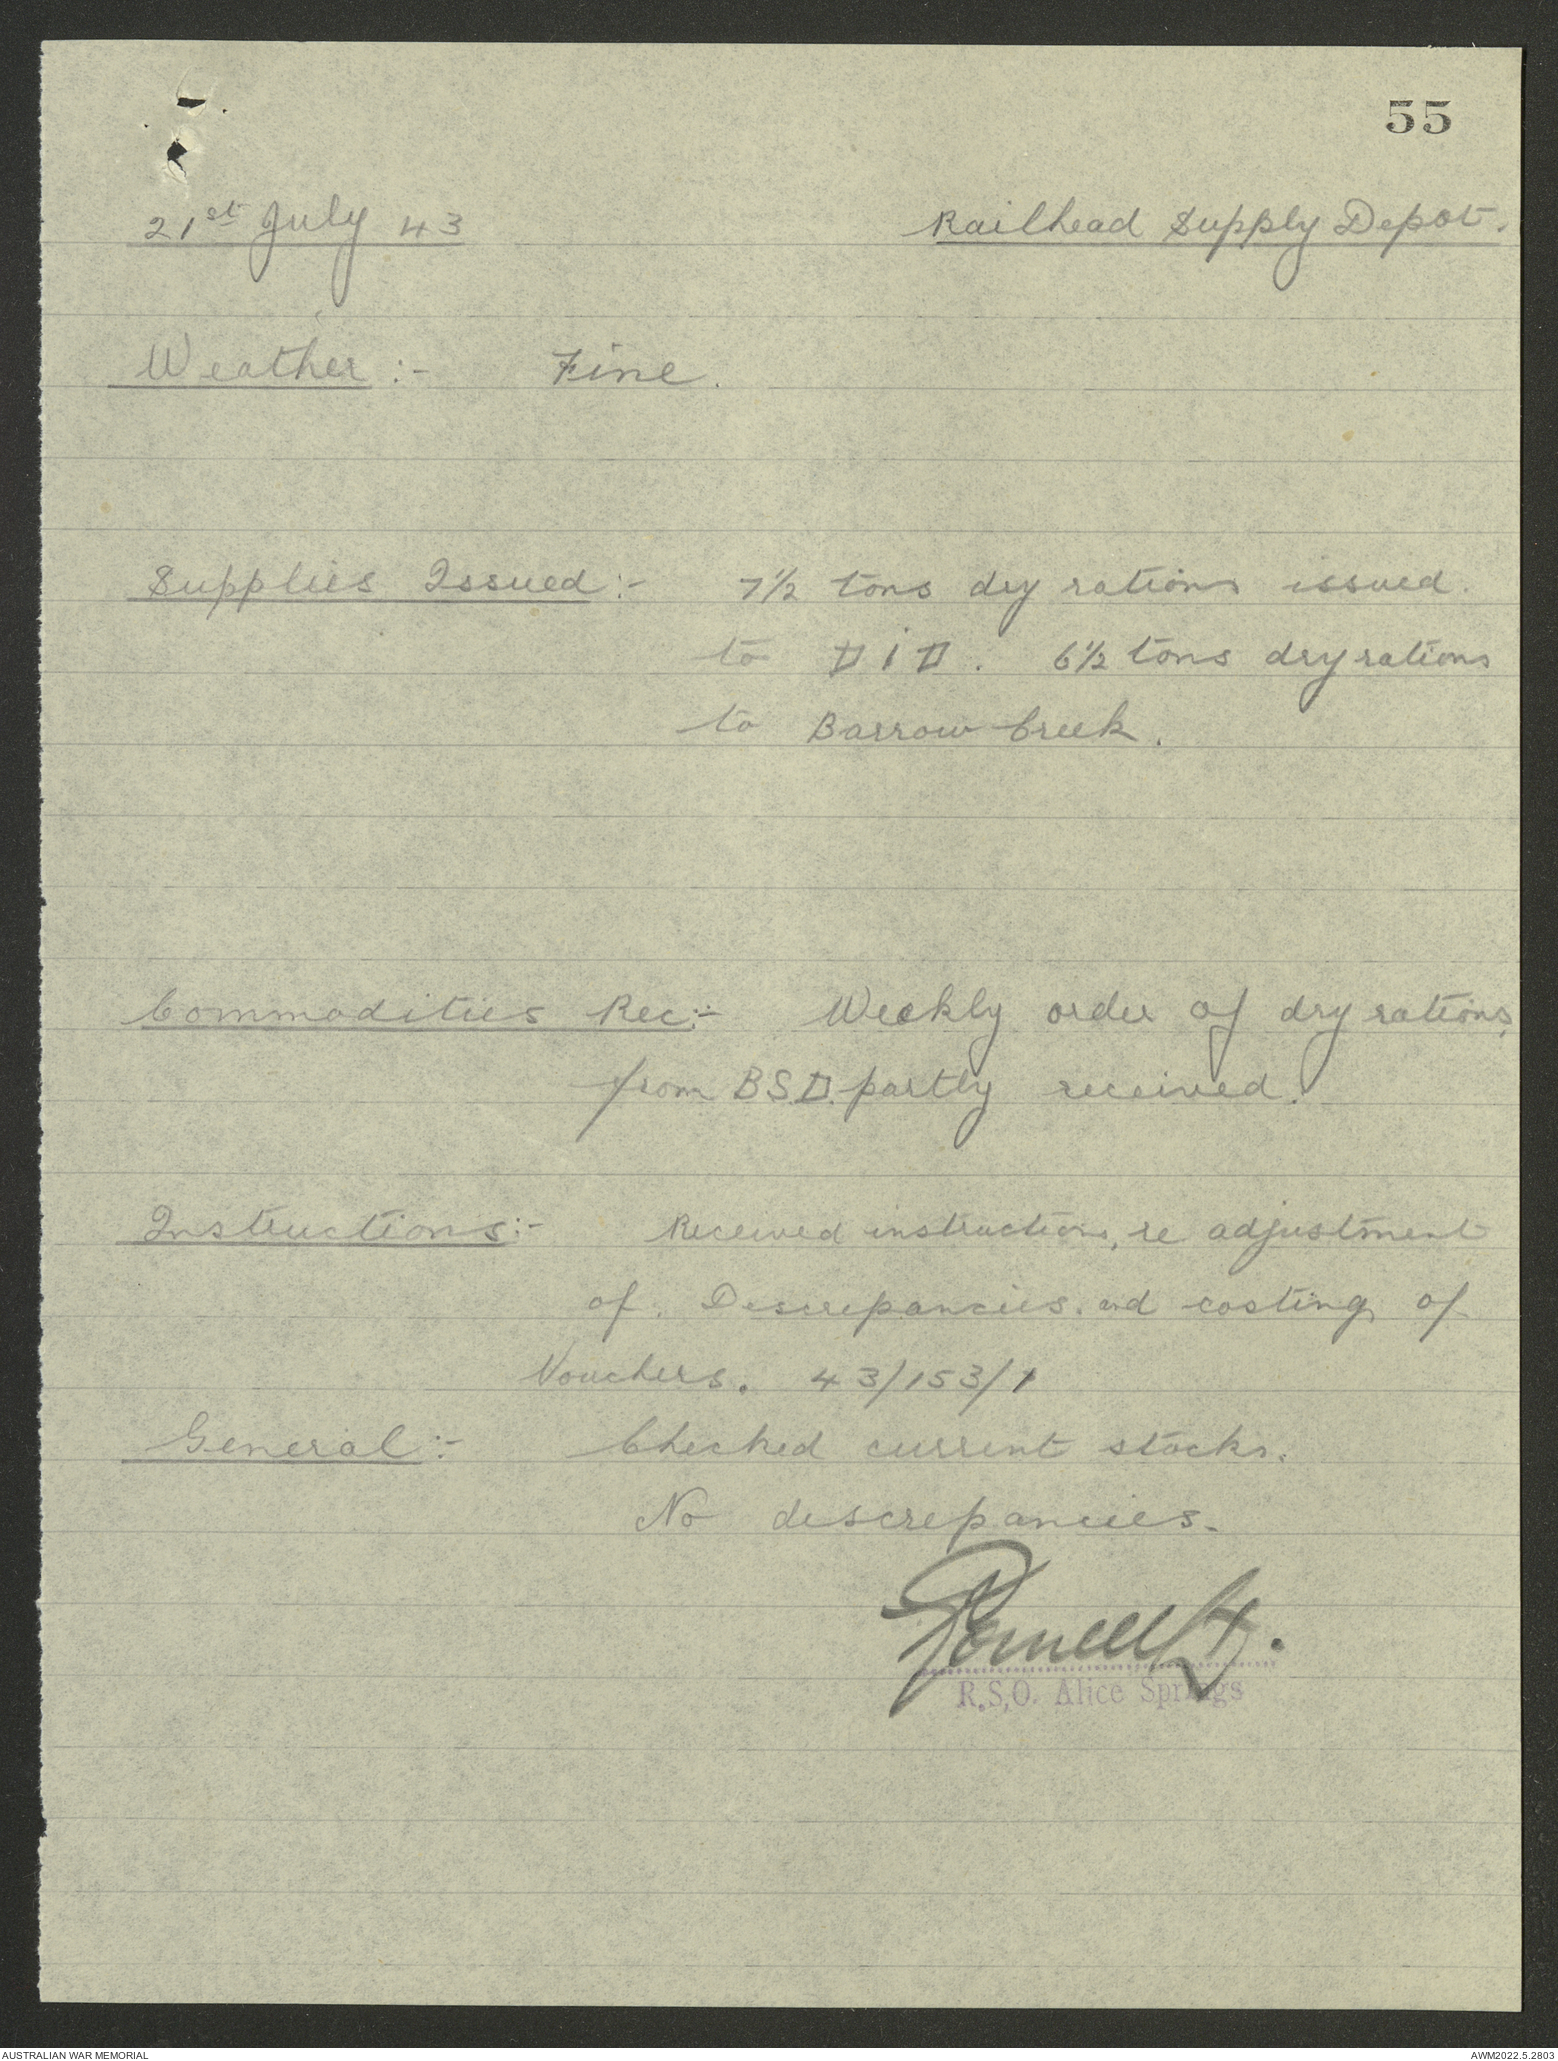 55
21st July 43 Railhead Supply Depot.
Weather:- Fine.
Supplies Issued:- 7½ tons dry rations issued.
to D I D. 6½ tons dry rations
to Barrow Creek.
Commodities Rec:- Weekly order of dry rations,
from B.S.D. partly received.
Instructions:- Received instructions, re adjustment
of. Descrepancies. and costing of
Vouchers. 43/153/1
General:- Checked current stocks.
No descrepancies.
R.S.O. Alice Springs
AUSTRALIAN WAR MEMORIAL AWM2022.5.2803